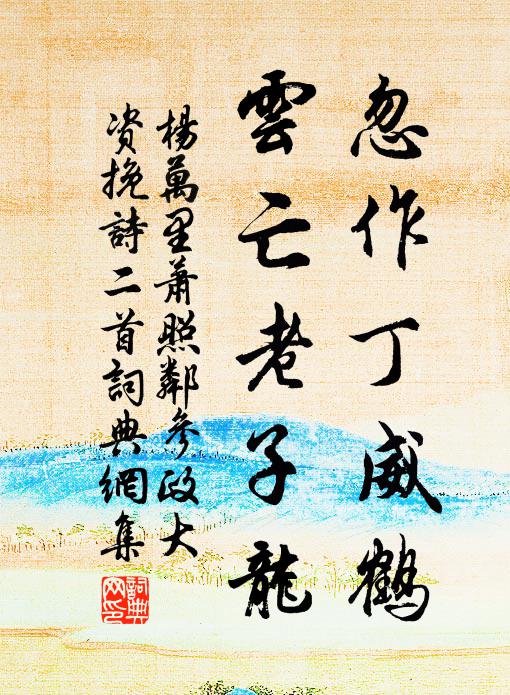 忽作丁威鶴
雲亡老子龍
楊萬里蕭照鄰參政大
资挽詩二首詞典網集
詞典網印